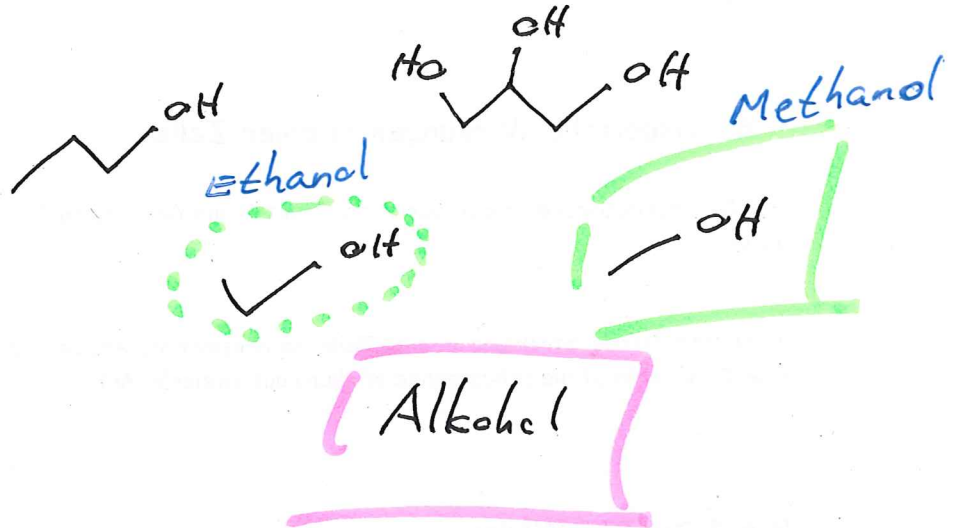 OH
HO
OH
OH
Methanol
Ethanol
OH
OH
Alkohol